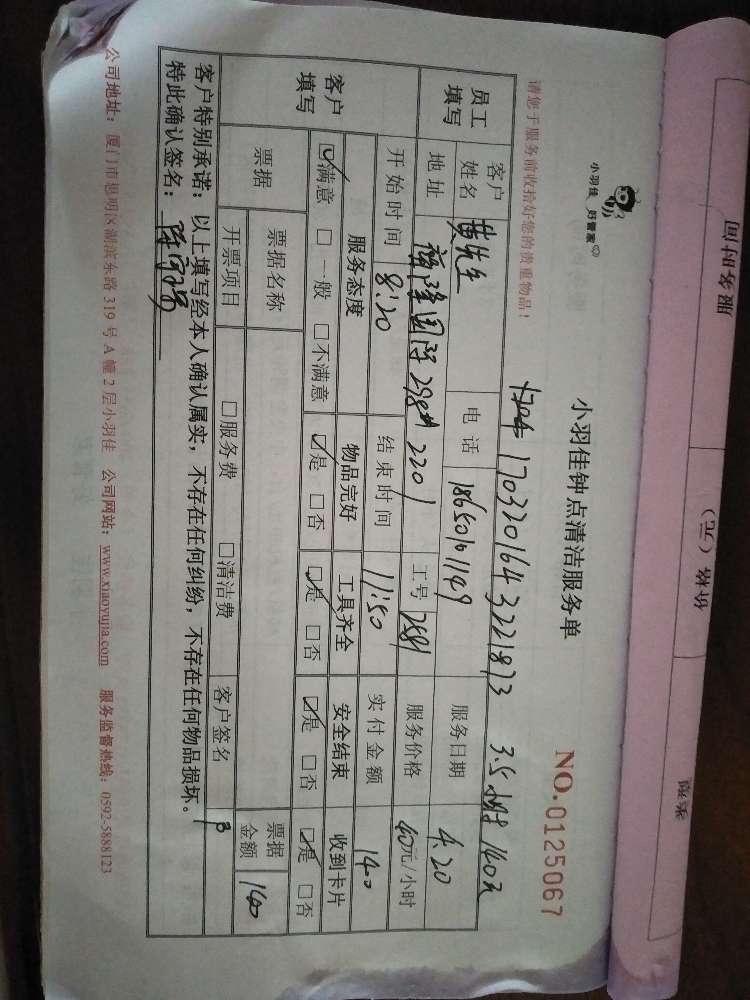 小羽佳 好管家
小羽佳钟点清洁服务单
NO.0125067
请您于服务前收拾好您的贵重物品!
1703201643221873 3.5小时 140元
员工填写
客户姓名 黄先生 电话 18650101149 服务日期 4.20
地址 福隆国际298# 2201 工号 2581 服务价格 40元/小时
开始时间 8:20 结束时间 11:50 实付金额 140
客户填写
服务态度 物品完好 工具齐全 安全结束 收到卡片
☑满意 □一般 □不满意 ☑是 □否 ☑是 □否 ☑是 □否 ☑是 □否
票据 票据名称 票据金额 140
开票项目 □服务费 □清洁费 客户签名
客户特别承诺：以上填写经本人确认属实，不存在任何纠纷，不存在任何物品损坏。
特此确认签名：
公司地址：厦门市思明区湖滨东路 319 号 A 幢 2 层小羽佳 公司网站：www.xiaoyujia.com 服务监督热线：0592-5888123
服务时间
价格（元）